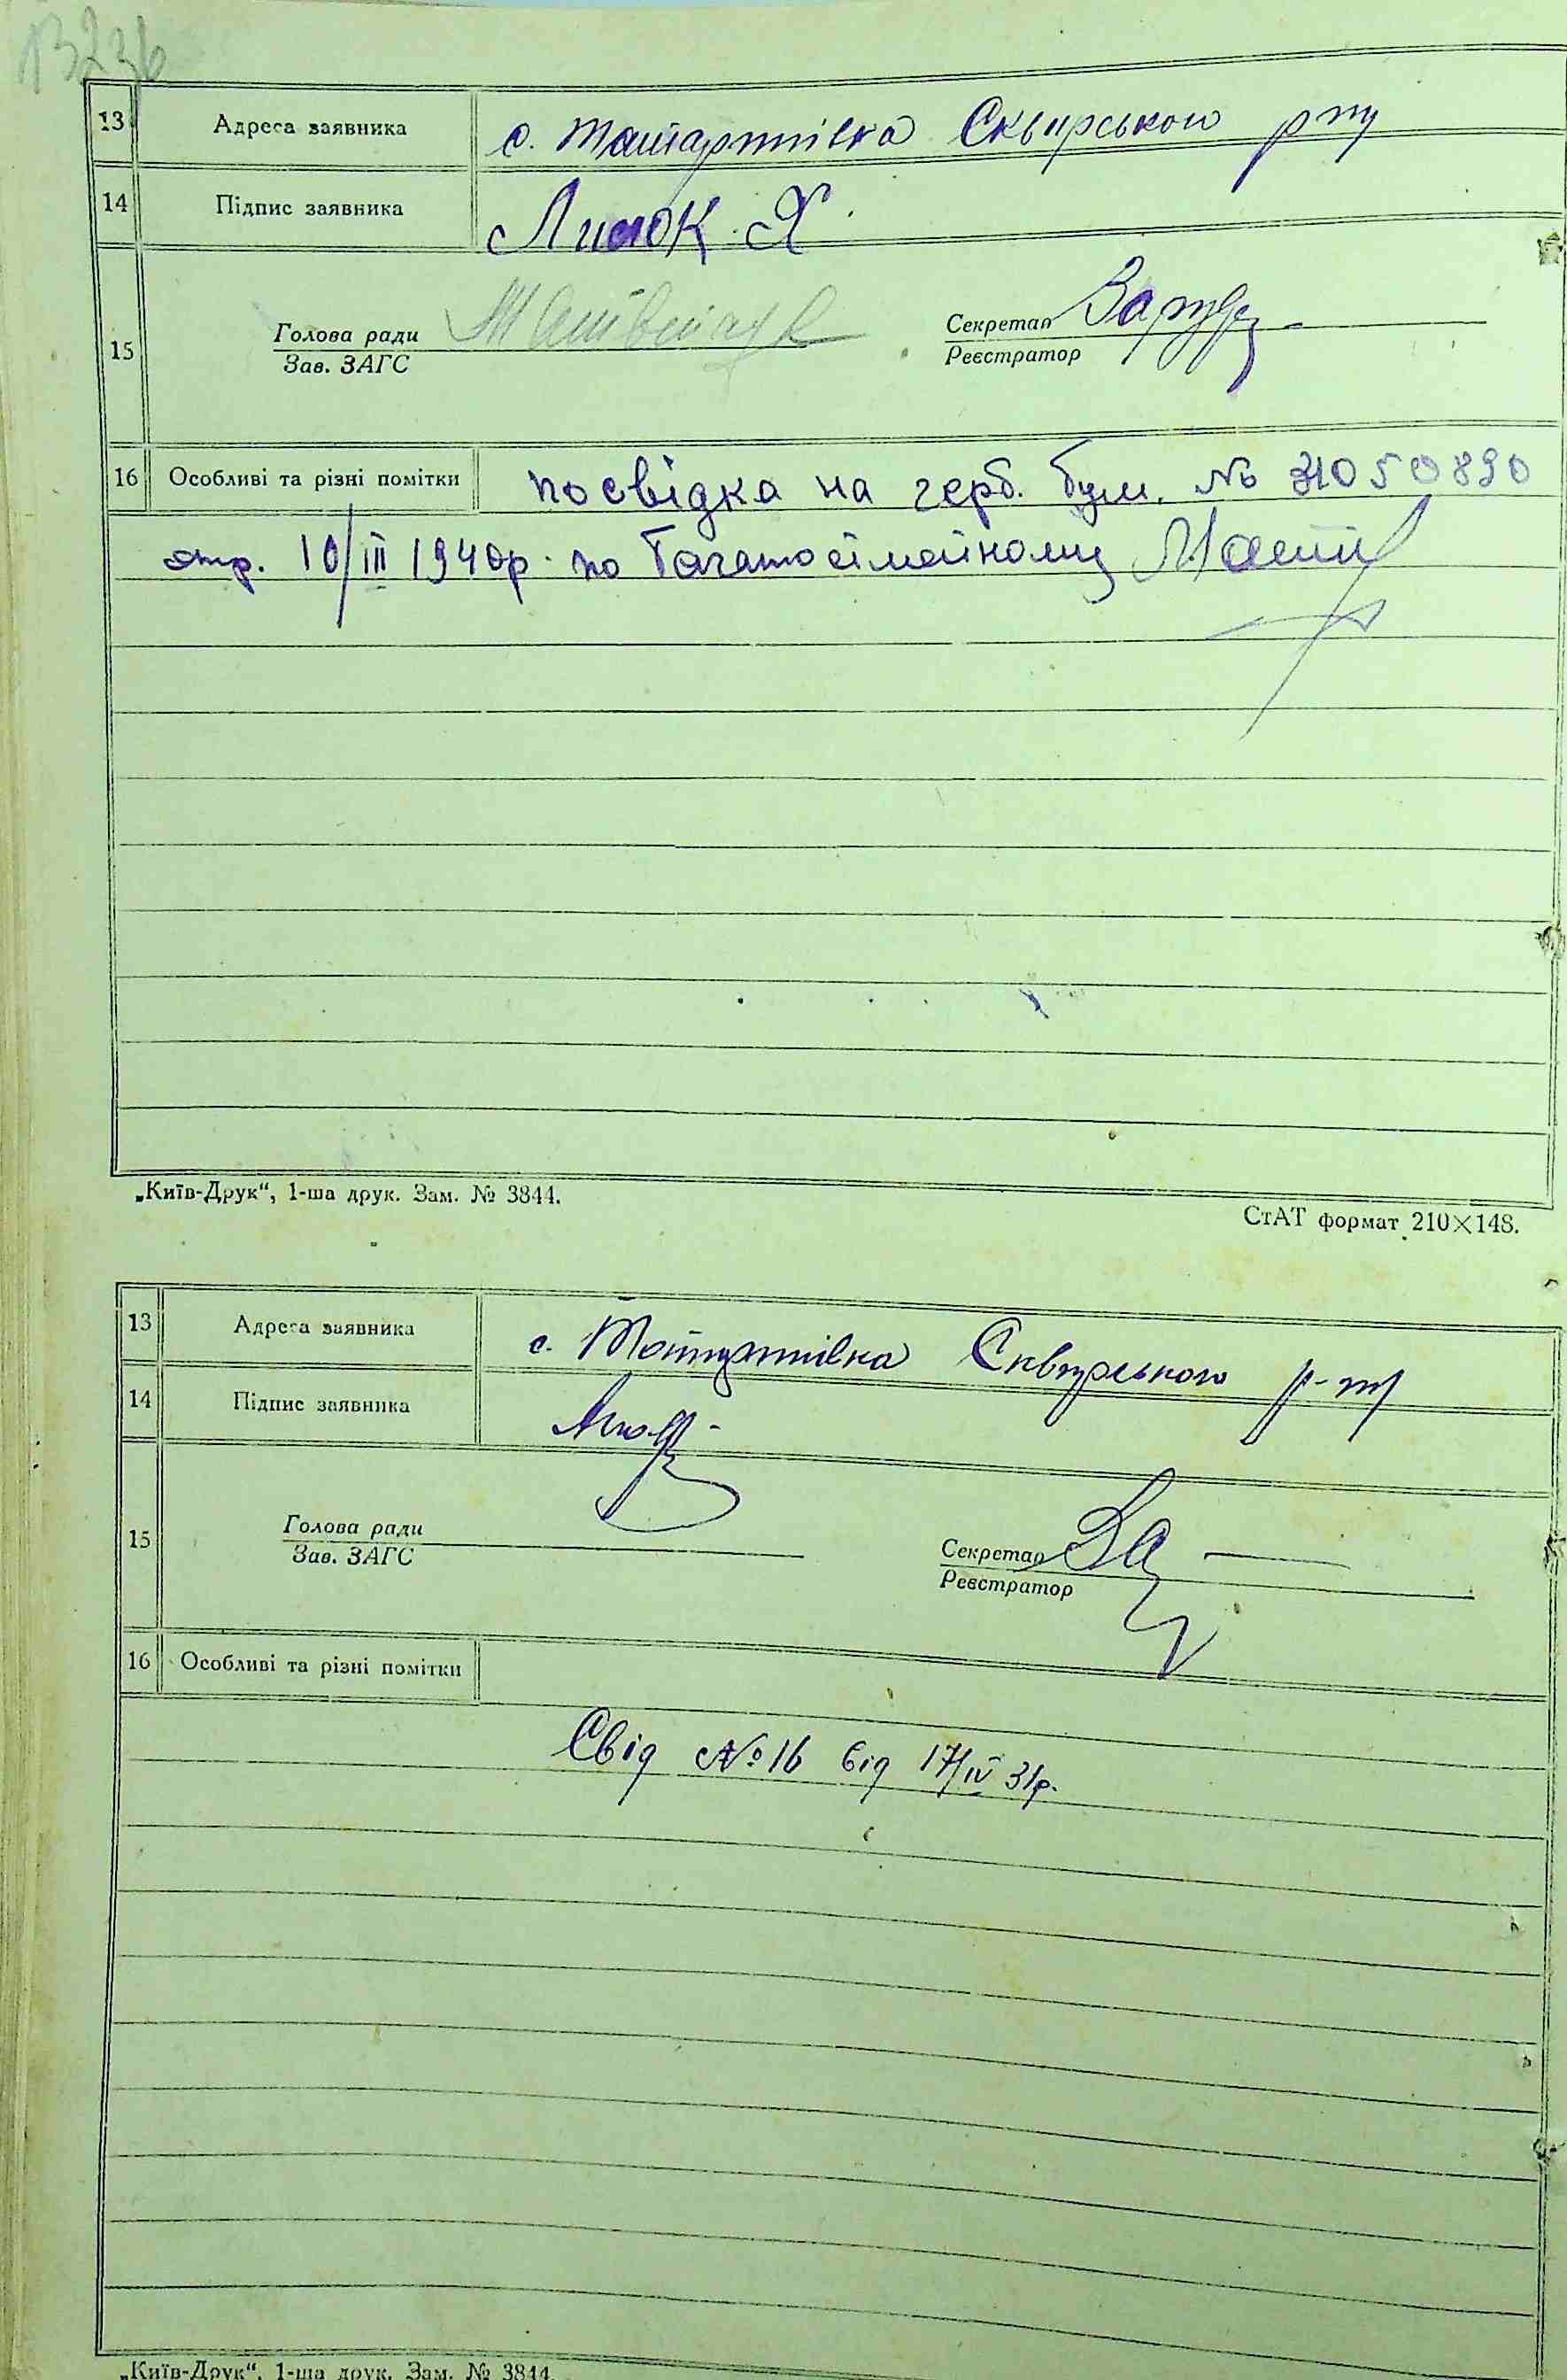 13236
13 Адреса заявника с. Татаринівка Сквирського р-ну
14 Підпис заявника Лисюк Я.
15 Голова ради Секретар
Зав. ЗАГС Реєстратор
16 Особливі та різні помітки посвідка на герб. бум. № 31050890
отр. 10/III 1940р. по багатосімейному
„Київ-Друк“, 1-ша друк. Зам. № 3844.
СтАТ формат 210×148.
13 Адреса заявника с. Сквирського р-ну
14 Підпис заявника
15 Голова ради Секретар
Зав. ЗАГС Реєстратор
16 Особливі та різні помітки
Свід №16 від 17/IV 31р.
„Київ-Друк“, 1-ша друк. Зам. № 3844.